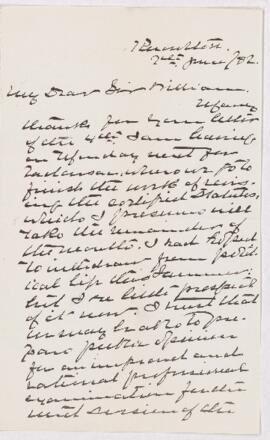 Moulton
7th June /02.
My Dear Sir William.
Many
thanks for your letter
of the 4th. I am leaving
on Monday next for
where we go to
finish the work of revis-
ing the certified Statutes,
which I presume will
take the remainder of
the month. I had hoped
to withdraw from polit-
ical life this Summer,
but I see little prospect
of it now. I trust that
we may be able to pre-
pare public opinion
for an improved and
national professional
examination for the
next session of the